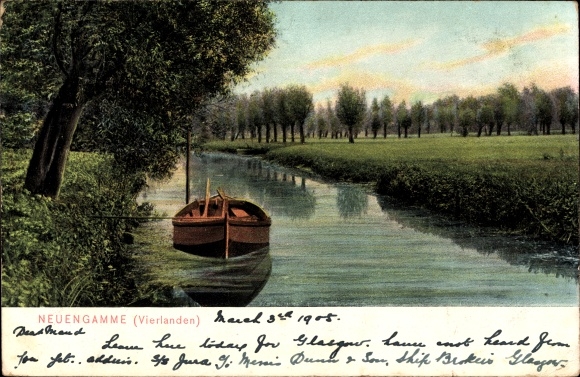 NEUENGAMME (Vierlanden) March 3rd 1905.
Dear Maud
Leave here today for Glasgow. have not heard from
you yet. address. S/s Jura c/o Messrs Dunn & Son, Ship Brokers Glasgow.